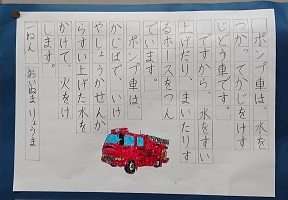 ポンプ車は、水を
つかってかじをけす
じどう車です。
ですから、水をすい
上げたり、まいたりす
るホースをつん
でいます。
ポンプ車は、
かじばで、いけ
やしょうかせんか
らすい上げた水を
かけて、火をけ
します。
一ねん おいぬま りょうま